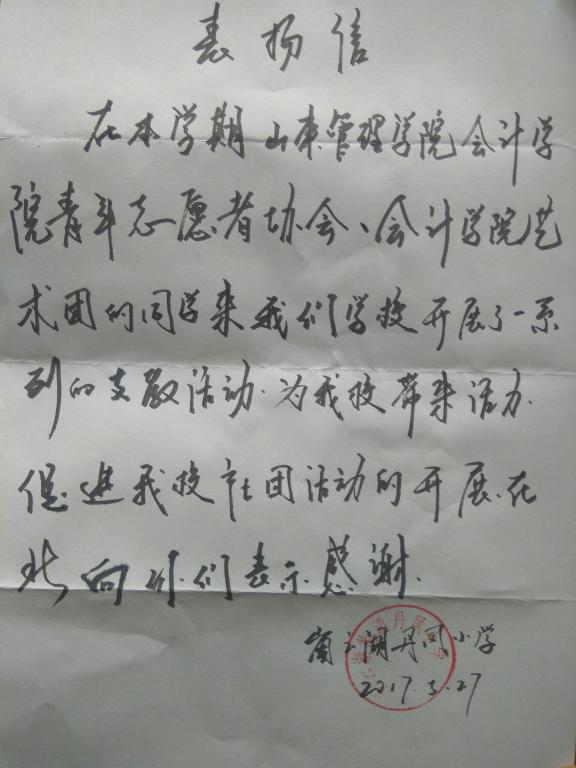 表扬信
在本学期山东管理学院会计学
院青年志愿者协会、会计学院艺
术团的同学来我们学校开展了一系
列的支教活动.为我校带来活力.
促进我校社团活动的开展.在
此向你们表示感谢.
崮云湖丹凤小学
2017.5.27